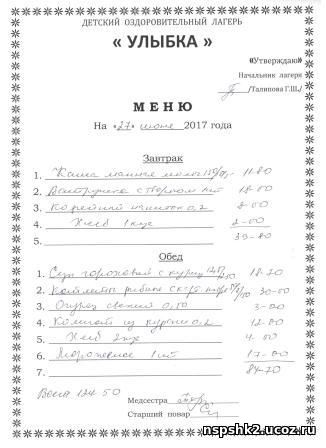 ДЕТСКИЙ ОЗДОРОВИТЕЛЬНЫЙ ЛАГЕРЬ
« УЛЫБКА »
«Утверждаю»
Начальник лагеря
/Талипова Г.Ш./
МЕНЮ
На «27» июне 2017 года
Завтрак
1. Каша манная молоч 11-80
2. с творогом 1шт 18-00
3. Кофейный напиток 0,2 8-00
4. Хлеб 1 кус 2-00
5. 39-80
Обед
1. Суп гороховый с курицей 18-70
2. Котлеты рыбные с 30-00
3. Огурец свежий 3-00
4. Компот из кураги 0,2 12-00
5. Хлеб 2 кус 4-00
6. Мороженое 1 шт 17-00
7. 84-70
Всего 124-50
Медсестра
Старший повар
nspshk2.ucoz.ru